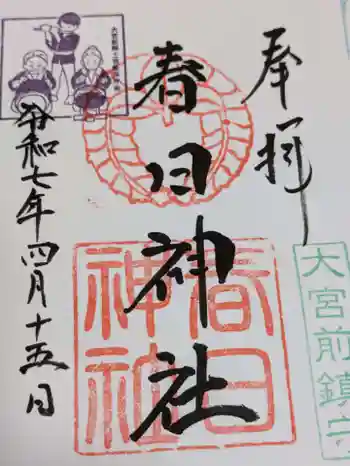 奉拝
春日神社
令和七年四月十五日
春日
神社
大宮前鎮守